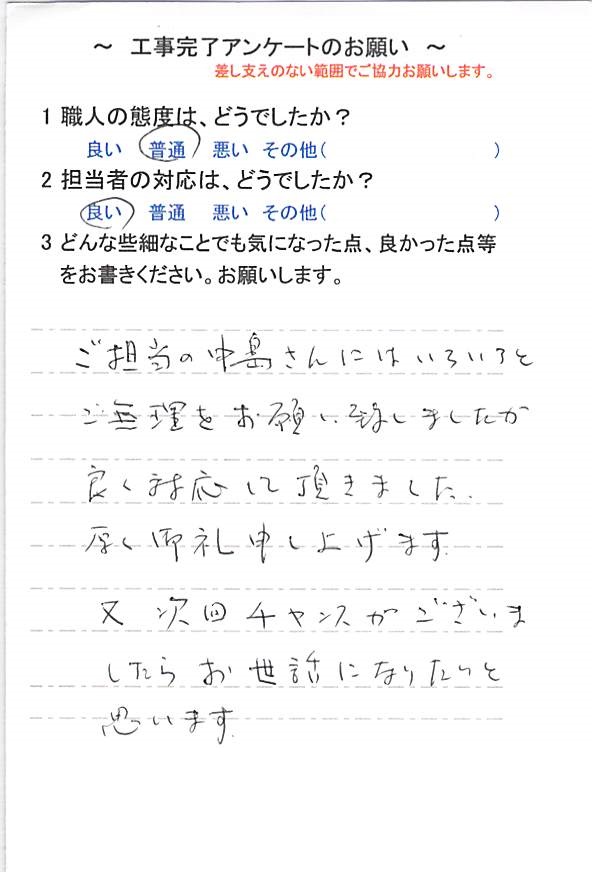 ～ 工事完了アンケートのお願い ～
差し支えのない範囲でご協力お願いします。
1 職人の態度は、どうでしたか？
良い 普通 悪い その他( )
2 担当者の対応は、どうでしたか？
良い 普通 悪い その他( )
3 どんな些細なことでも気になった点、良かった点等
をお書きください。お願いします。
ご担当の中島さんにはいろいろと
ご無理をお願い致しましたか
良く対応して頂きました.
厚く御礼申し上げます.
又 次回チャンスがございま
したらお世話になりたいと
思います.